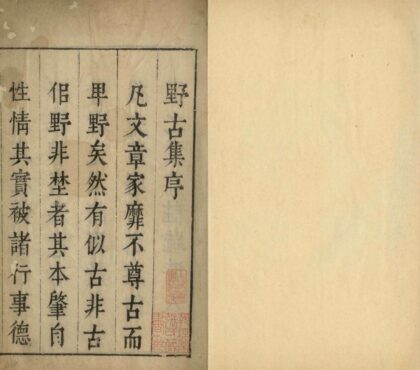 野古集序
凡文章家靡不尊古而
卑野矣然有似古非古
佀野非埜者其本肇自
性情其實被諸行事德